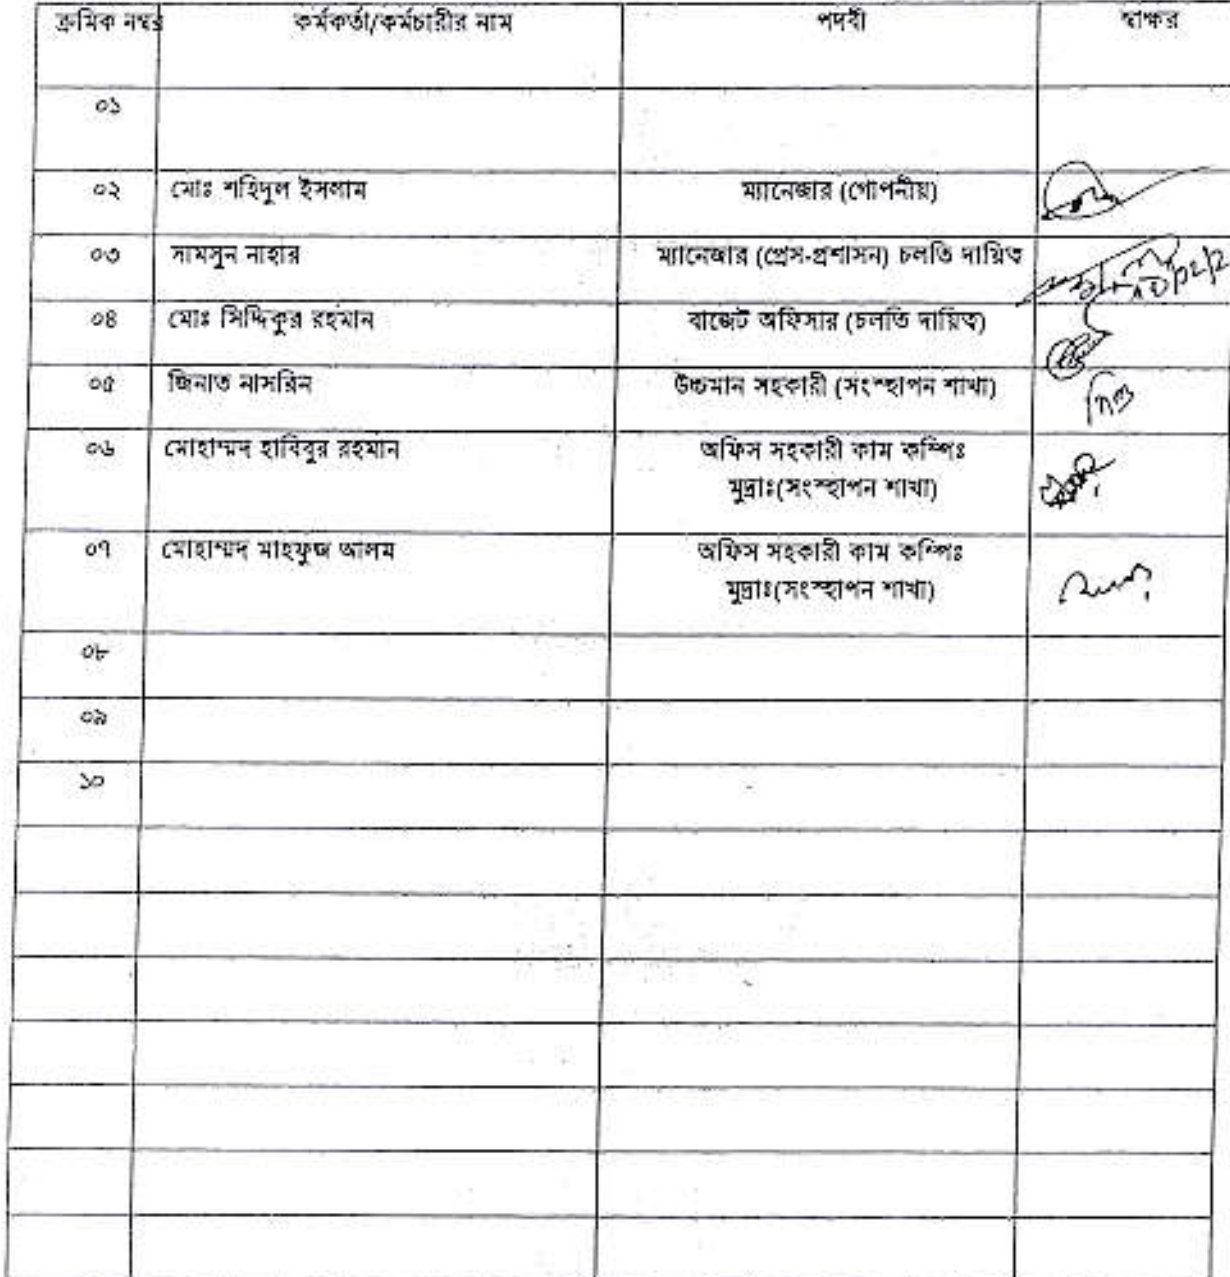 ক্রমিক নম্বর কর্মকর্তা/কর্মচারীর নাম পদবী স্বাক্ষর
০১
০২ মোঃ শহিদুল ইসলাম ম্যানেজার (গোপনীয়)
০৩ সামসুন নাহার ম্যানেজার (প্রেস-প্রশাসন) চলতি দায়িত্ব
০৪ মোঃ সিদ্দিকুর রহমান বাজেট অফিসার (চলতি দায়িত্ব)
০৫ জিনাত নাসরিন উচ্চমান সহকারী (সংস্হাপন শাখা)
০৬ মোহাম্মদ হাবিবুর রহমান অফিস সহকারী কাম কম্পিঃ
মুদ্রাঃ(সংস্হাপন শাখা)
০৭ মোহাম্মদ মাহফুজ আলম অফিস সহকারী কাম কম্পিঃ
মুদ্রাঃ(সংস্হাপন শাখা)
০৮
০৯
১০